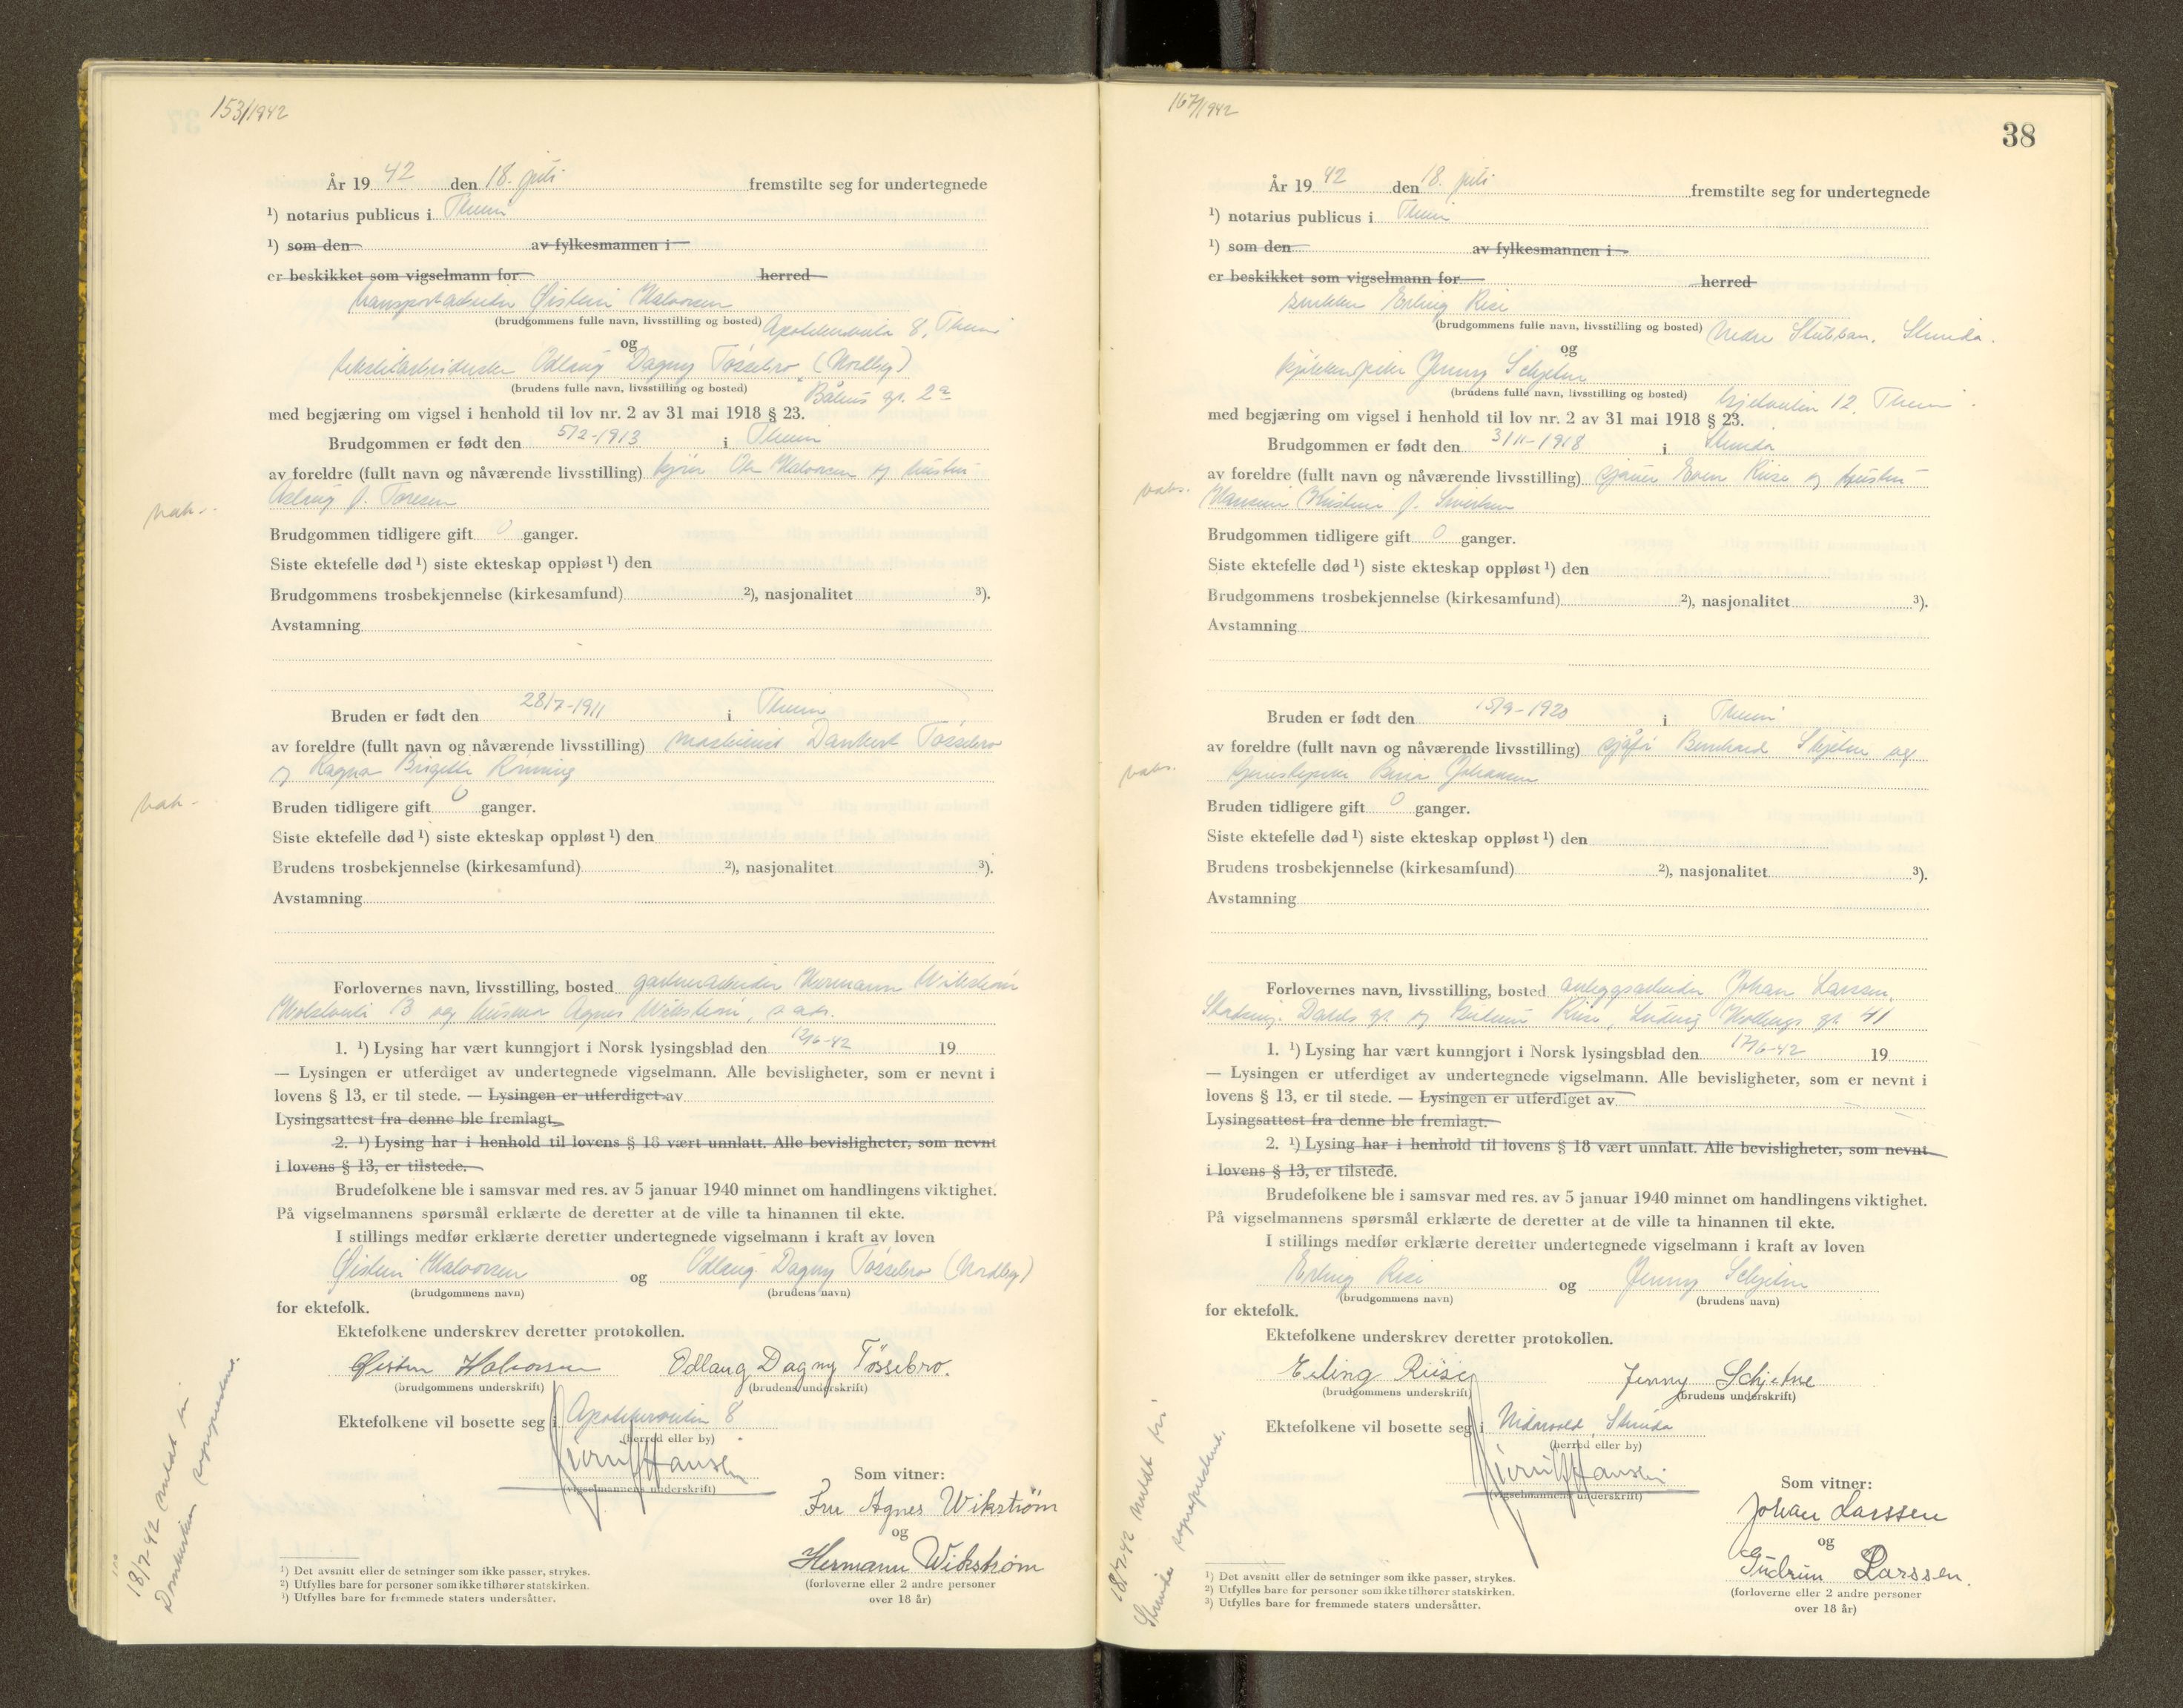 153/1942
År 19 42 den 18. juli fremstilte seg for undertegnede
¹) notarius publicus i Theim
¹) som den av fylkesmannen i
er beskikket som vigselmann for herred
transportarbeider Øistein Halvorsen
(brudgommens fulle navn, livsstilling og bosted) Apotekerveita 8, Theim
og
tekstilarbeiderske Odlaug Dagny Tøssebro (Nordby)
(brudens fulle navn, livsstilling og bosted) gt. 2a
med begjæring om vigsel i henhold til lov nr. 2 av 31 mai 1918 § 23.
Brudgommen er født den 5/2-1913 i Theim
av foreldre (fullt navn og nåværende livsstilling) Ole Halvorsen og hustru
Aslaug f. Toresen
vak.
Brudgommen tidligere gift 0 ganger.
Siste ektefelle død ¹) siste ekteskap oppløst ¹) den
Brudgommens trosbekjennelse (kirkesamfund) ²), nasjonalitet ³).
Avstamning
Bruden er født den 28/7-1911 i Theim
av foreldre (fullt navn og nåværende livsstilling) maskinist Dankert Tøssebro
og Ragna Brigitte Rønning
vak.
Bruden tidligere gift 0 ganger.
Siste ektefelle død ¹) siste ekteskap oppløst ¹) den
Brudens trosbekjennelse (kirkesamfund) ²), nasjonalitet ³).
Avstamning
Forlovernes navn, livsstilling, bosted Hermann Wikstrøm
og Agnes Wikstrøm, s. adr.
1. ¹) Lysing har vært kunngjort i Norsk lysingsblad den 12/6-42 19
— Lysingen er utferdiget av undertegnede vigselmann. Alle bevisligheter, som er nevnt i
lovens § 13, er til stede. — Lysingen er utferdiget av
Lysingsattest fra denne ble fremlagt.
2. ¹) Lysing har i henhold til lovens § 18 vært unnlatt. Alle bevisligheter, som nevnt
i lovens § 13, er tilstede.
Brudefolkene ble i samsvar med res. av 5 januar 1940 minnet om handlingens viktighet.
På vigselmannens spørsmål erklærte de deretter at de ville ta hinannen til ekte.
I stillings medfør erklærte deretter undertegnede vigselmann i kraft av loven
Øistein Halvorsen og Odlaug Dagny Tøssebro (Nordby)
(brudgommens navn) (brudens navn)
for ektefolk.
Ektefolkene underskrev deretter protokollen.
Øistein Halvorsen Odlaug Dagny Tøssebro.
(brudgommens underskrift) (brudens underskrift)
Ektefolkene vil bosette seg i Apotekerveita 8
(herred eller by)
Hansen
(vigselmannens underskrift)
Som vitner:
Fru Agnes Wikstrøm
og
Hermann Wikstrøm
(forloverne eller 2 andre personer
over 18 år)
¹) Det avsnitt eller de setninger som ikke passer, strykes.
²) Utfylles bare for personer som ikke tilhører statskirken.
³) Utfylles bare for fremmede staters undersåtter.
18/7-42 meldt til
Domkirken sogneprestemb.
167/1942
38
År 19 42 den 18. juli fremstilte seg for undertegnede
¹) notarius publicus i Theim
¹) som den av fylkesmannen i
er beskikket som vigselmann for herred
snekker Erling Riise
(brudgommens fulle navn, livsstilling og bosted) Nedre Stubban, Strinda.
og
kjøkkenpike Jenny Schjetne
(brudens fulle navn, livsstilling og bosted) 12, Theim
med begjæring om vigsel i henhold til lov nr. 2 av 31 mai 1918 § 23.
Brudgommen er født den 3/11-1918 i Strinda
av foreldre (fullt navn og nåværende livsstilling) Even Riise og hustru
f.
vaks.
Brudgommen tidligere gift 0 ganger.
Siste ektefelle død ¹) siste ekteskap oppløst ¹) den
Brudgommens trosbekjennelse (kirkesamfund) ²), nasjonalitet ³).
Avstamning
Bruden er født den 15/9-1920 i Theim
av foreldre (fullt navn og nåværende livsstilling) sjåfør Bernhard Schjetne og
Johansen
vaks.
Bruden tidligere gift 0 ganger.
Siste ektefelle død ¹) siste ekteskap oppløst ¹) den
Brudens trosbekjennelse (kirkesamfund) ²), nasjonalitet ³).
Avstamning
Forlovernes navn, livsstilling, bosted anleggsarbeider Johan Larssen,
Dahls gt. og Riise, Ludvig gt. 41
1. ¹) Lysing har vært kunngjort i Norsk lysingsblad den 17/6-42 19
— Lysingen er utferdiget av undertegnede vigselmann. Alle bevisligheter, som er nevnt i
lovens § 13, er til stede. — Lysingen er utferdiget av
Lysingsattest fra denne ble fremlagt.
2. ¹) Lysing har i henhold til lovens § 18 vært unnlatt. Alle bevisligheter, som nevnt
i lovens § 13, er tilstede.
Brudefolkene ble i samsvar med res. av 5 januar 1940 minnet om handlingens viktighet.
På vigselmannens spørsmål erklærte de deretter at de ville ta hinannen til ekte.
I stillings medfør erklærte deretter undertegnede vigselmann i kraft av loven
Erling Riise og Jenny Schjetne
(brudgommens navn) (brudens navn)
for ektefolk.
Ektefolkene underskrev deretter protokollen.
Erling Riise Jenny Schjetne
(brudgommens underskrift) (brudens underskrift)
Ektefolkene vil bosette seg i Nidarvold, Strinda
(herred eller by)
Hansen
(vigselmannens underskrift)
Som vitner:
Johan Larssen
og
Gudrun Larssen.
(forloverne eller 2 andre personer
over 18 år)
¹) Det avsnitt eller de setninger som ikke passer, strykes.
²) Utfylles bare for personer som ikke tilhører statskirken.
³) Utfylles bare for fremmede staters undersåtter.
18/7-42 meldt til
Strinda sogneprestemb.